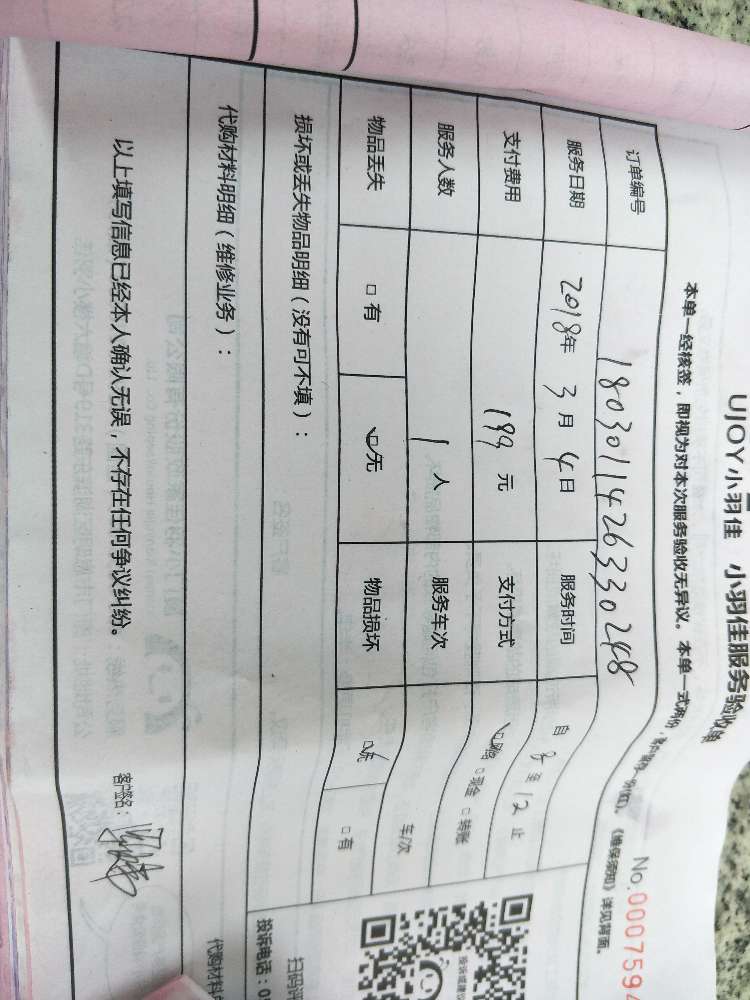 UJOY小羽佳 小羽佳服务验收单
No.0007594
本单一经核签，即视为对本次服务验收无异议。本单一式两份，《维保须知》详见背面。
订单编号 180301142633330248
服务日期 2018年 3月 4日 服务时间 自 8 至 12 止
支付费用 199 元 支付方式 □网络 □现金 □转账
服务人数 1 人 服务车次 车/次
物品丢失 □有 □无 物品损坏 □无 □有
损坏或丢失物品明细（没有可不填）：
代购材料明细（维修业务）：
以上填写信息已经本人确认无误，不存在任何争议纠纷。
客户签名：
投诉电话：0
代购材料